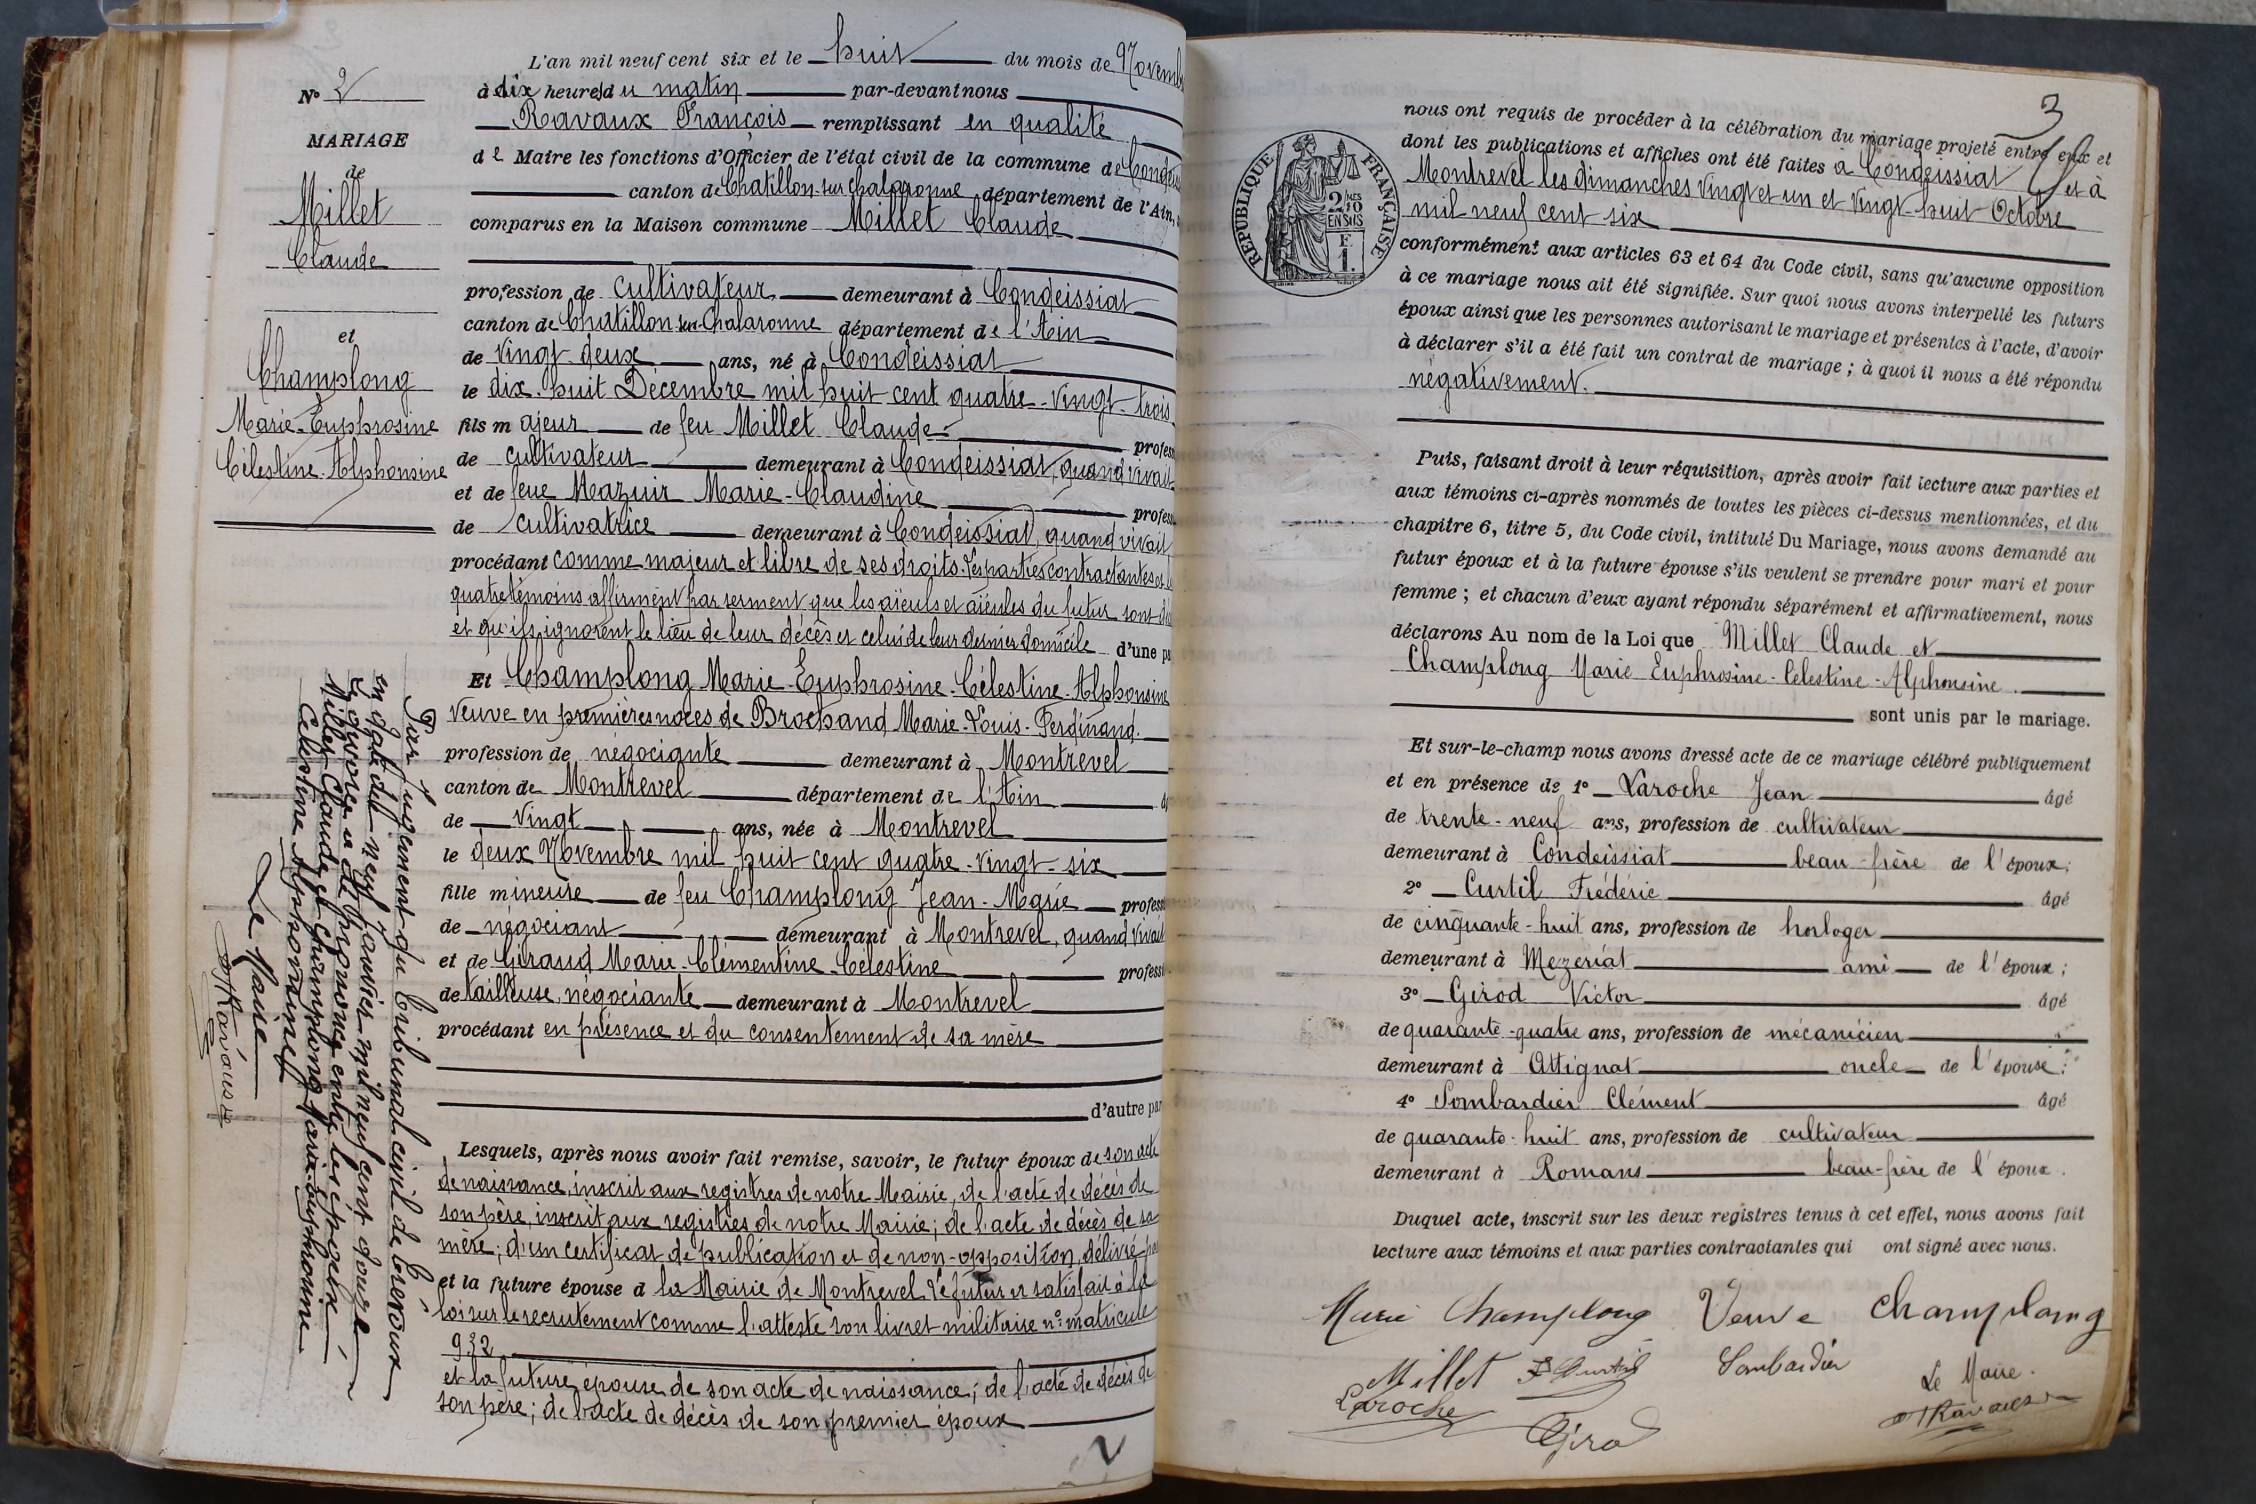 N° 2
MARIAGE
de
Millet
Claude
et
Champlong
Marie-Euphrosine
Célestine-Alphonsine
Par jugement du tribunal civil de trévoux
en date du neuf Janvier mil neuf cent douze
Le divorce a été prononcé entre les époux
Millet Claude et Champlong Marie Euphrosine
Célestine Alphonsine
Le Maire
Ravaux
L'an mil neuf cent six et le huit du mois de Novemb
à dix heures du matin par-devant nous
Ravaux François remplissant en qualité
de Maire les fonctions d'Officier de l'état civil de la commune de Condeis
canton de Chatillon-sur-Chalaronne département de l'Ain,
comparus en la Maison commune Millet Claude
profession de cultivateur demeurant à Condeissiat
canton de Chatillon-sur-Chalaronne département de l'Ain
de vingt-deux ans, né à Condeissiat
le dix-huit Décembre mil huit cent quatre-vingt-trois
fils majeur de feu Millet Claude profess
de cultivateur demeurant à Condeissiat, quand vivait
et de feue Mazuir Marie-Claudine profess
de cultivatrice demeurant à Condeissiat, quand vivait
procédant comme majeur et libre de ses droits. Les parties contractantes et les
quatre témoins affirment par serment que les aïeuls et aïeules du futur sont dé
et qu'ils ignorent le lieu de leur décès et celui de leur dernier domicile d'une pa
Et Champlong Marie-Euphrosine-Célestine-Alphonsine
Veuve en premières noces de Brochand Marie-Louis-Ferdinand.
profession de négociante demeurant à Montrevel
canton de Montrevel département de l'Ain
de vingt ans, née à Montrevel
le deux Novembre mil huit cent quatre-vingt-six
fille mineure de feu Champlong Jean-Marie profess
de négociant demeurant à Montrevel, quand vivait
et de Giraud Marie-Clémentine-Célestine professi
de tailleuse, négociante demeurant à Montrevel
procédant en présence et du consentement de sa mère
d'autre par
Lesquels, après nous avoir fait remise, savoir, le futur époux de son acte
de naissance, inscrit aux registres de notre Mairie, de l'acte de décès de
son père, inscrit aux registres de notre Mairie; de l'acte de décès de sa
mère; d'un certificat de publication et de non-opposition, délivré par
et la future épouse à la Mairie de Montrevel. Le futur a satisfait à la
loi sur le recrutement comme l'atteste son livret militaire n° matricule
932
et la future épouse de son acte de naissance; de l'acte de décès de
son père; de l'acte de décès de son premier époux
2
3
RÉPUBLIQUE FRANÇAISE
2/10 MES
EN SUS
F.
1.
nous ont requis de procéder à la célébration du mariage projeté entre eux et
dont les publications et affiches ont été faites à Condeissiat et à
Montrevel les dimanches vingt et un et vingt-huit Octobre
mil neuf cent six
conformément aux articles 63 et 64 du Code civil, sans qu'aucune opposition
à ce mariage nous ait été signifiée. Sur quoi nous avons interpellé les futurs
époux ainsi que les personnes autorisant le mariage et présentes à l'acte, d'avoir
à déclarer s'il a été fait un contrat de mariage; à quoi il nous a été répondu
négativement.
Puis, faisant droit à leur réquisition, après avoir fait lecture aux parties et
aux témoins ci-après nommés de toutes les pièces ci-dessus mentionnées, et du
chapitre 6, titre 5, du Code civil, intitulé Du Mariage, nous avons demandé au
futur époux et à la future épouse s'ils veulent se prendre pour mari et pour
femme; et chacun d'eux ayant répondu séparément et affirmativement, nous
déclarons Au nom de la Loi que Millet Claude et
Champlong Marie Euphrosine-Célestine-Alphonsine.
sont unis par le mariage.
Et sur-le-champ nous avons dressé acte de ce mariage célébré publiquement
et en présence de 1° Laroche Jean âgé
de trente-neuf ans, profession de cultivateur
demeurant à Condeissiat beau-frère de l'époux;
2° Curtil Frédéric âgé
de cinquante-huit ans, profession de horloger
demeurant à Mezériat ami de l'époux;
3° Girod Victor âgé
de quarante-quatre ans, profession de mécanicien
demeurant à Attignat oncle de l'épouse;
4° Lombardier Clément âgé
de quarante-huit ans, profession de cultivateur
demeurant à Romans beau-frère de l'époux.
Duquel acte, inscrit sur les deux registres tenus à cet effet, nous avons fait
lecture aux témoins et aux parties contractantes qui ont signé avec nous.
Marie Champlong Veuve Champlong
Millet F Curtil Lombardier Le Maire.
Laroche Girod Ravaux